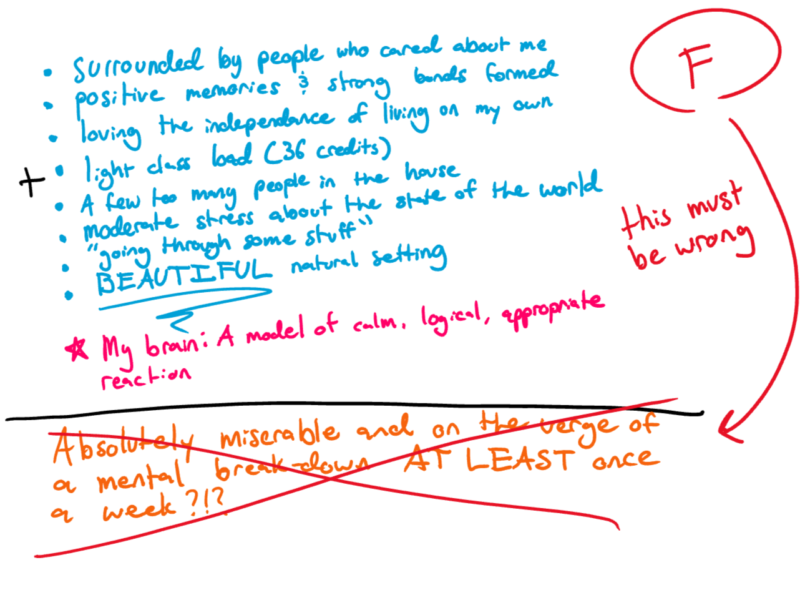 • Surrounded by people who cared about me
• positive memories & strong bonds formed
• loving the independance of living on my own
• light class load (36 credits)
+
• A few too many people in the house
• moderate stress about the state of the world
• "going through some stuff"
• BEAUTIFUL natural setting
F
this must
be wrong
★ My brain: A model of calm, logical, appropriate
reaction
Absolutely miserable and on the verge of
a mental breakdown AT LEAST once
a week?!?